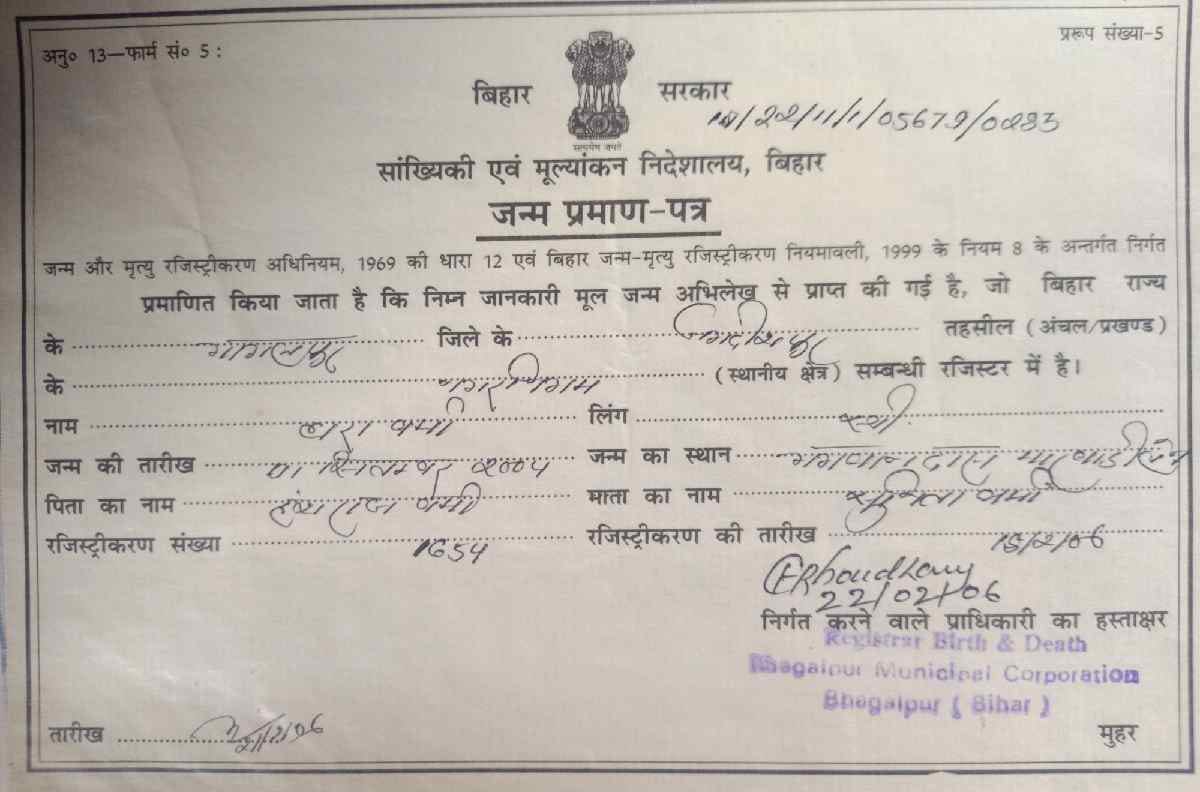 अनु० 13—फार्म सं० 5 :
प्ररूप संख्या-5
बिहार सरकार
/22/11/1/05679/0283
सत्यमेव जयते
सांख्यिकी एवं मूल्यांकन निदेशालय, बिहार
जन्म प्रमाण-पत्र
जन्म और मृत्यु रजिस्ट्रीकरण अधिनियम, 1969 की धारा 12 एवं बिहार जन्म-मृत्यु रजिस्ट्रीकरण नियमावली, 1999 के नियम 8 के अन्तर्गत निर्गत
प्रमाणित किया जाता है कि निम्न जानकारी मूल जन्म अभिलेख से प्राप्त की गई है, जो बिहार राज्य
के भागलपुर जिले के जगदीशपुर तहसील (अंचल/प्रखण्ड)
के नगर निगम (स्थानीय क्षेत्र) सम्बन्धी रजिस्टर में है।
नाम वर्मा लिंग स्त्री
जन्म की तारीख सितम्बर २००५ जन्म का स्थान भगवान दास मारवाडी
पिता का नाम राज वर्मा माता का नाम वर्मा
रजिस्ट्रीकरण संख्या 1654 रजिस्ट्रीकरण की तारीख 15/2/06
Choudhary
22/02/06
निर्गत करने वाले प्राधिकारी का हस्ताक्षर
Registrar Birth & Death
Bhagalpur Municipal Corporation
Bhagalpur ( Bihar )
तारीख
मुहर